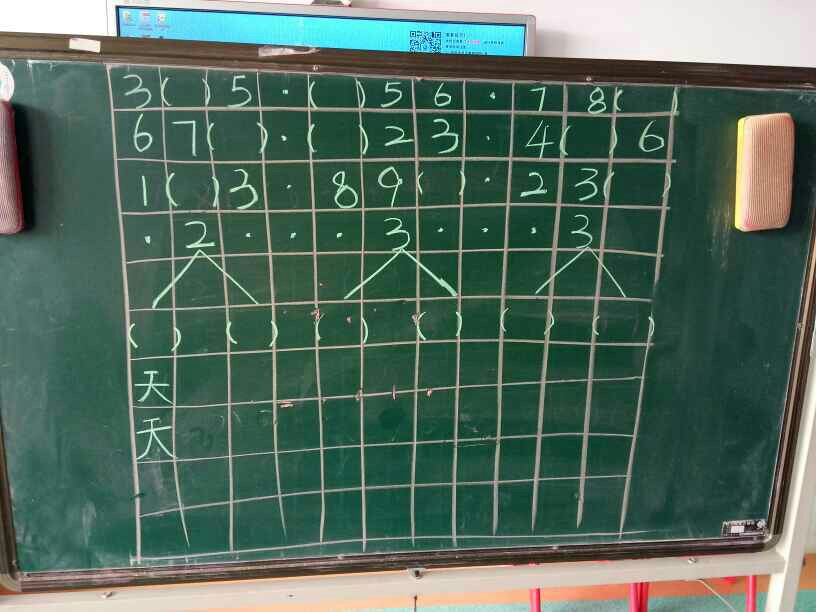 3( )5·( )56·78( )
67( )·( )23·4( )6
1( )3·89( )·23( )
·2···3···3
( ) ( ) ( ) ( ) ( ) ( )
天
天